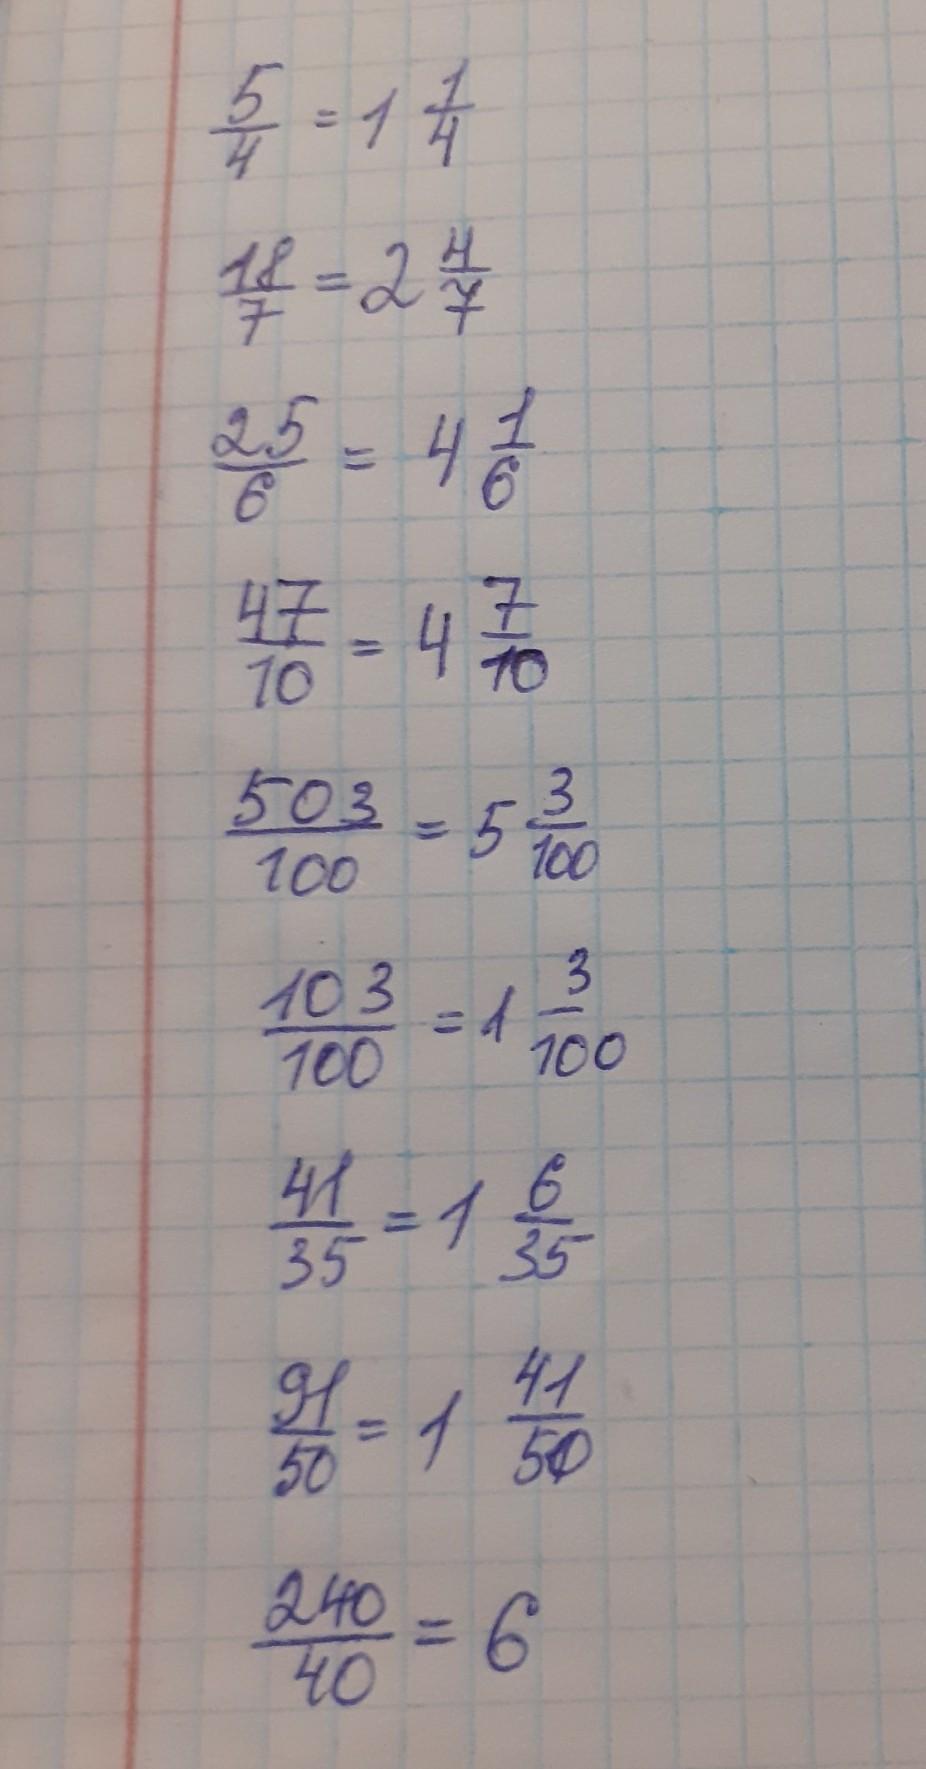 5/4 = 1 1/4
18/7 = 2 4/7
25/6 = 4 1/6
47/10 = 4 7/10
503/100 = 5 3/100
103/100 = 1 3/100
41/35 = 1 6/35
91/50 = 1 41/50
240/40 = 6